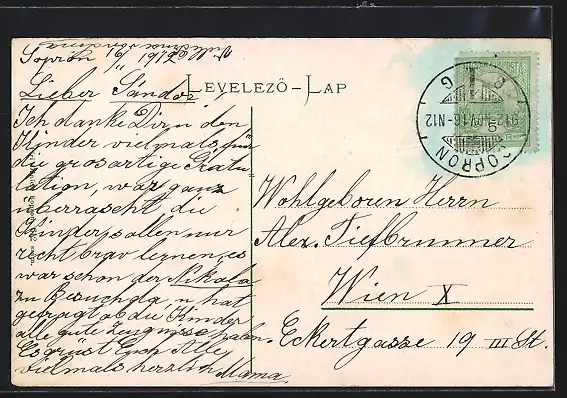 Sopron 16/11 1912
LEVELEZŐ-LAP
Lieber Sandor!
Ich danke Dir u den
Kinder vielmals für
die grosartige Gratu-
lation, war ganz
überrascht, die
Kinder sollen nur
recht brav lernen, es
war schon der Nikola
zu Besuch da, u hat
gefragt ob die Kinder
alle gute Zeugnisse haben.
Es grüst Euch Alle
vielmals herzlich
Mama.
Wohlgeboren Herrn
Alex. Tiefbrunner
Wien X
Eckertgasse 19 III St.
SOPRON
912 NOV.16-N12